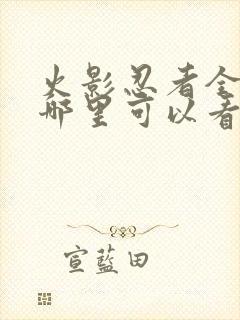 火影忍者全
哪里可以看
宣蓝田